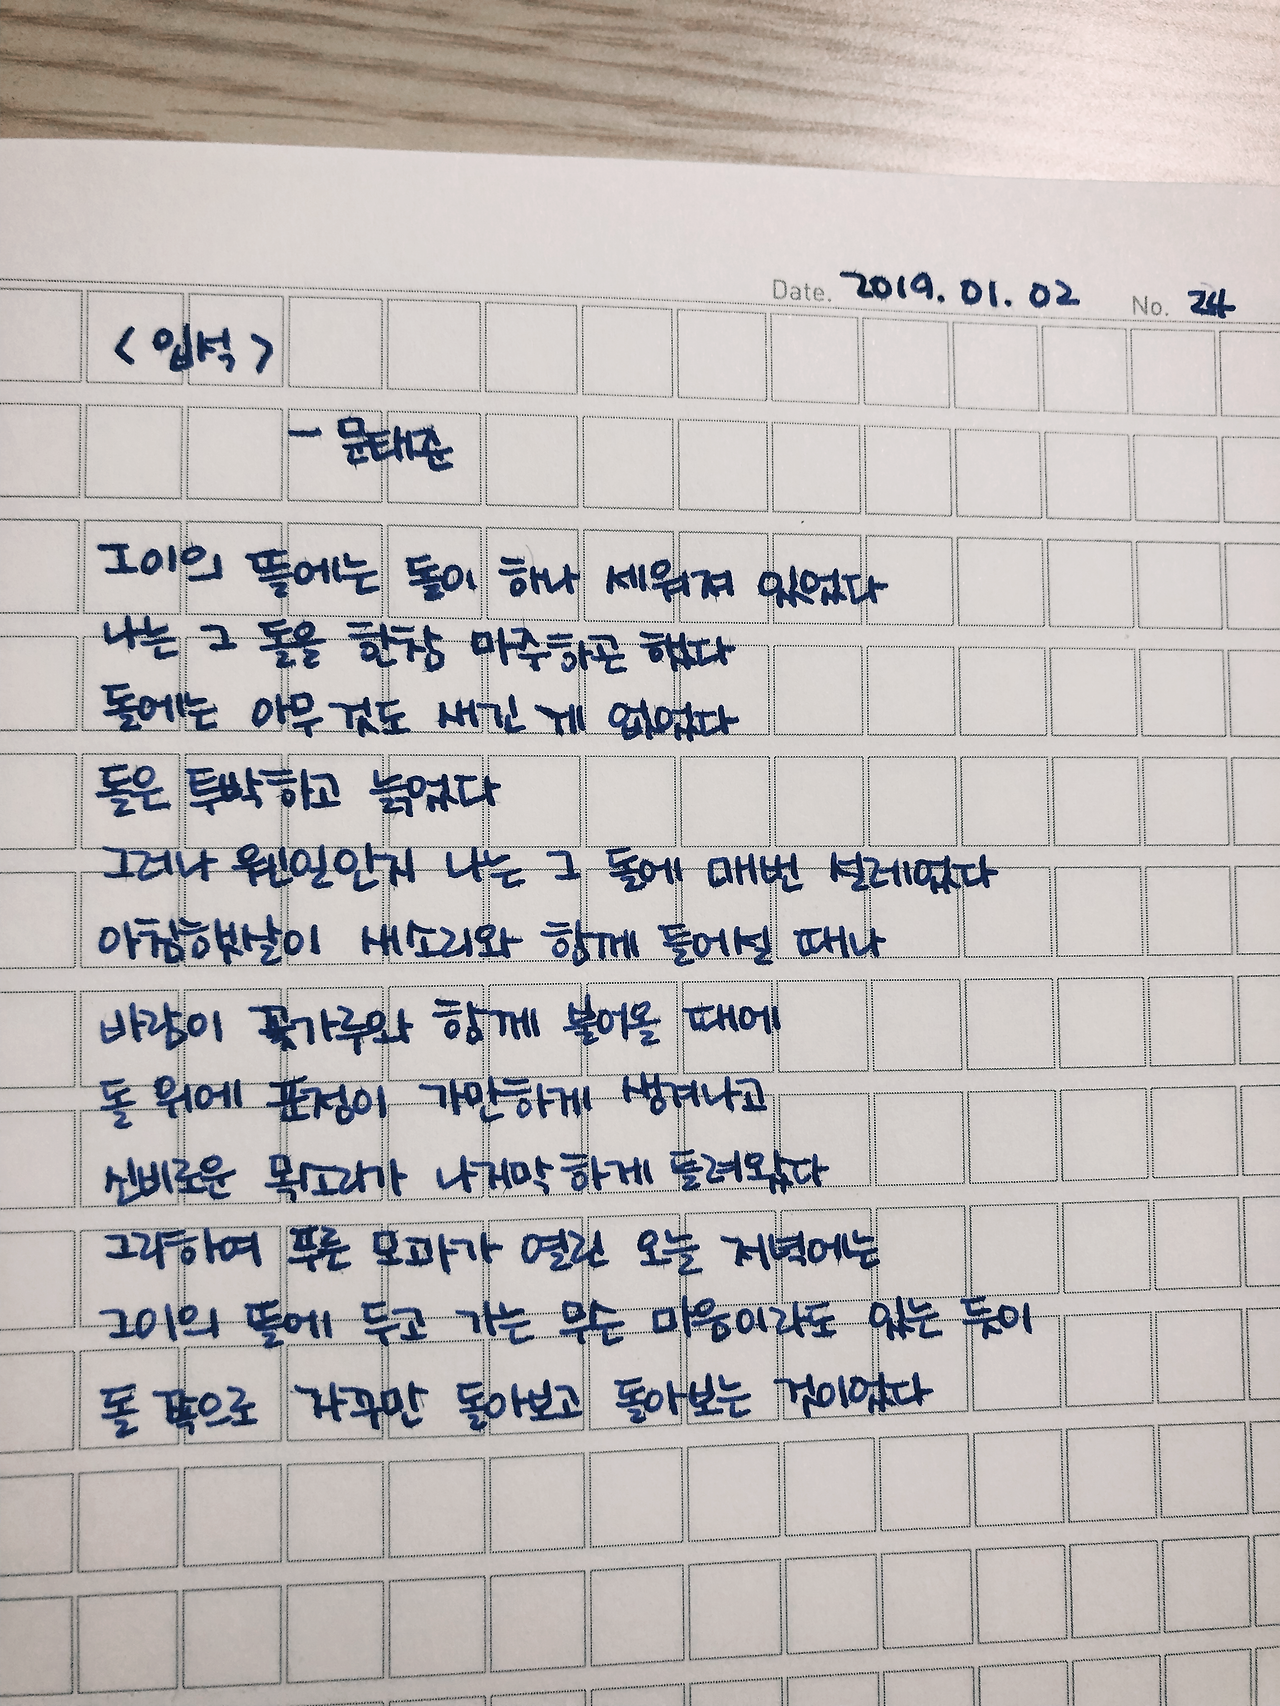 Date. 2019. 01. 02 No. 24
< 입석 >
- 문태준
그이의 뜰에는 돌이 하나 세워져 있었다
나는 그 돌을 한참 마주하곤 했다
돌에는 아무 것도 새긴 게 없었다
돌은 투박하고 늙었다
그러나 웬일인지 나는 그 돌에 매번 설레었다
아침햇살이 새소리와 함께 들어설 때나
바람이 꽃가루와 함께 불어올 때에
돌 위에 표정이 가만하게 생겨나고
신비로운 목소리가 나지막하게 들려왔다
그리하여 푸른 모과가 열린 오늘 저녁에는
그이의 뜰에 두고 가는 무슨 마음이라도 있는 듯이
돌 쪽으로 자꾸만 돌아보고 돌아보는 것이었다